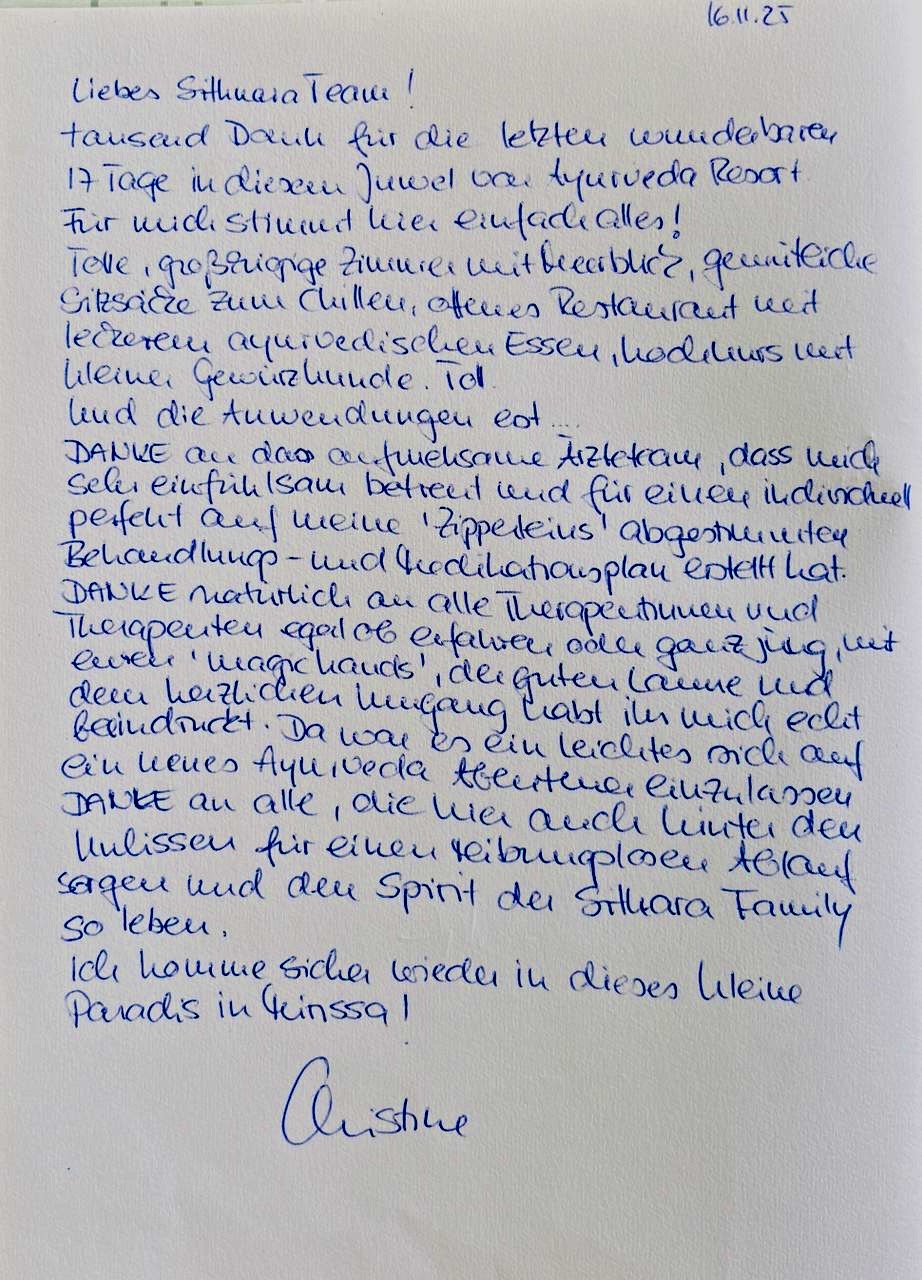 16.11.25
Liebes Sithnara Team!
tausend Dank für die letzten wunderbaren
17 Tage in diesem Juwel von Ayurveda Resort
Für mich stimmt hier einfach alles!
Tolle, großzügige Zimmer mit Meerblick, gemütliche
Sitzsäcke zum Chillen, offenes Restaurant mit
leckerem ayurvedischen Essen, Kochkurs mit
kleiner Gewürzkunde. Toll
Und die Anwendungen erst....
DANKE an das aufmerksame Ärzteteam, dass mich
sehr einfühlsam betreut und für einen individuell
perfekt auf meine 'Zipperleins' abgestimmten
Behandlungs- und Medikationsplan erstellt hat.
DANKE natürlich an alle Therapeutinnen und
Therapeuten egal ob erfahren oder ganz jung, mit
euren 'magic hands', der guten Laune und
dem herzlichen Umgang habt ihr mich echt
beeindruckt. Da war es ein leichtes sich auf
ein neues Ayurveda Abenteuer einzulassen
DANKE an alle, die hier auch hinter den
Kulissen für einen reibungslosen Ablauf
sorgen und den Spirit der Sithara Family
so leben.
Ich komme sicher wieder in dieses kleine
Paradis in Mirissa!
Christine